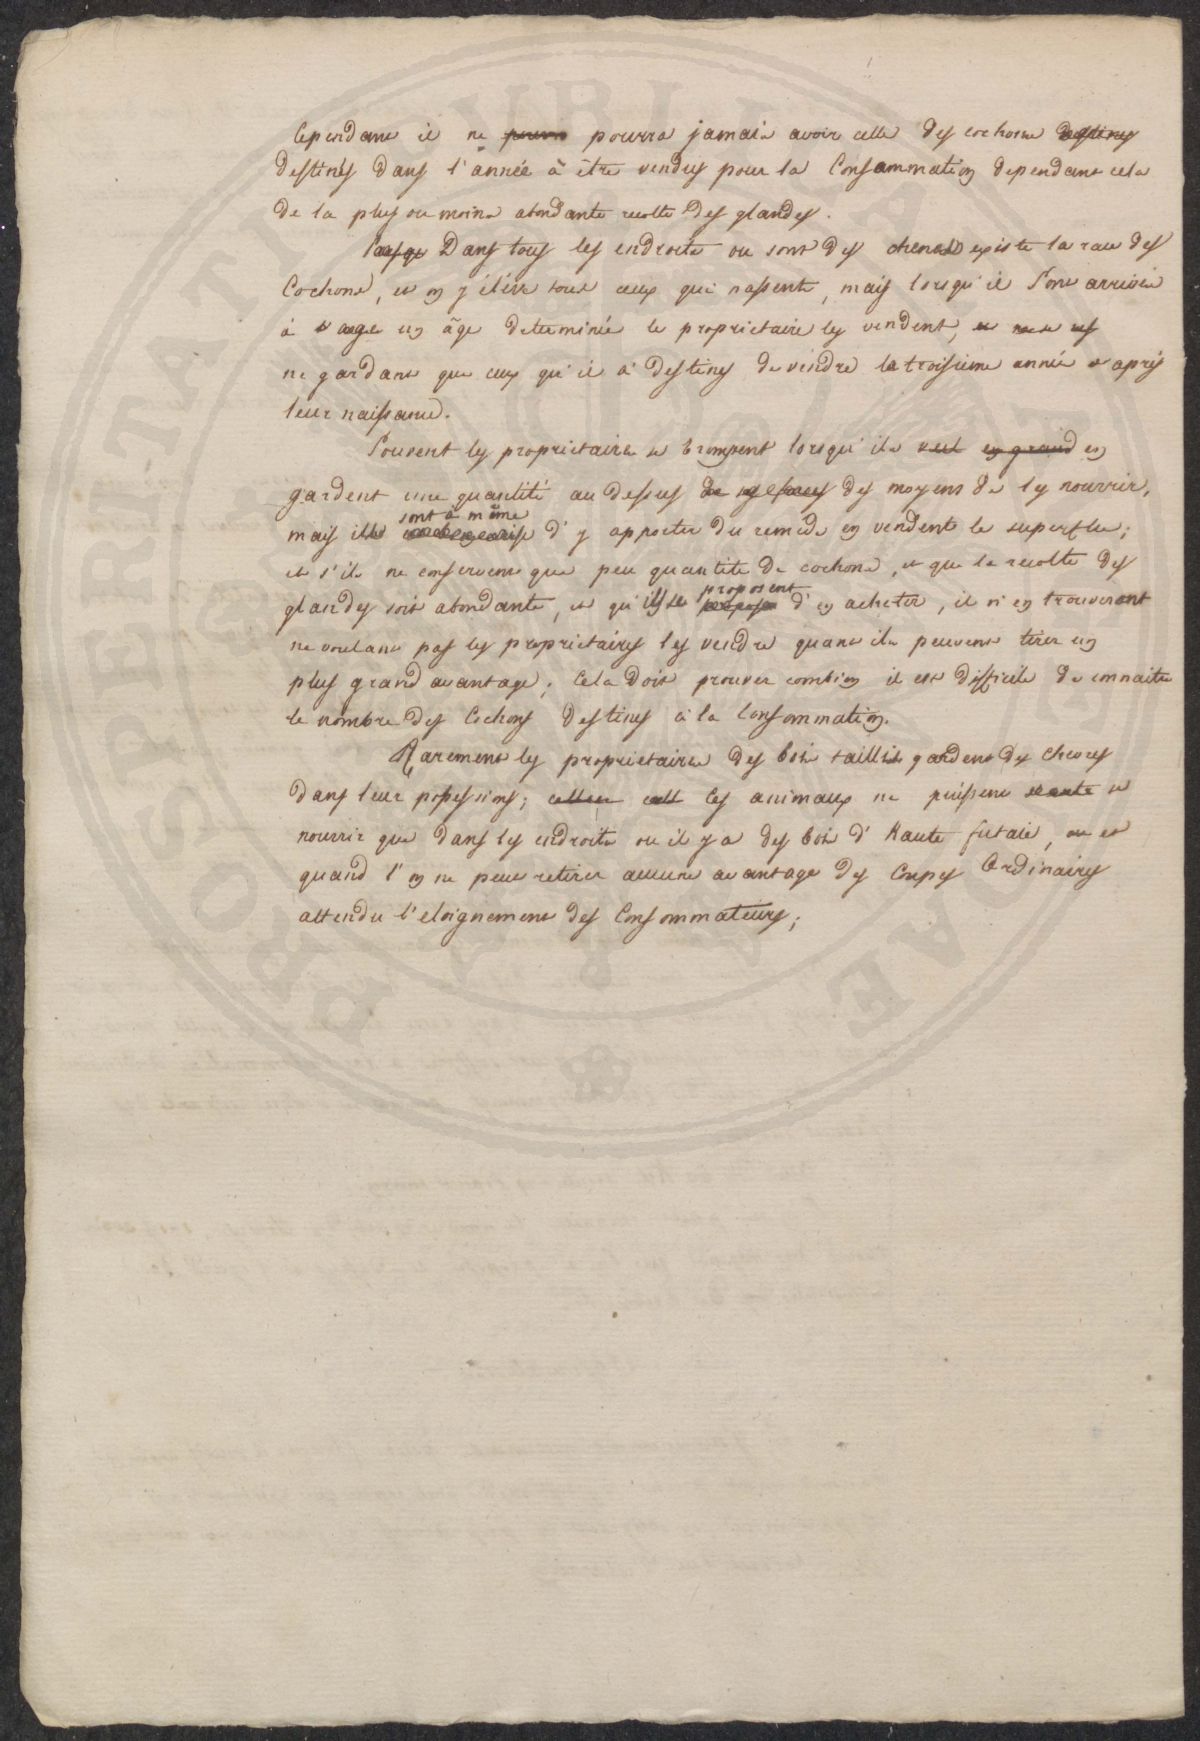 Cependant il ne pourra pourra jamais avoir celle des cochons destinés
destinés dans l'année à être vendus pour la Consammation dependant cela
de la plus ou moins abondante recolte des glandes.
Dans tous les endroits ou sont des chenes existe la race des
Cochons, et on y élève tous ceux qui naissent, mais lorsqu'il sont arrivés
à l'age un âge determinée le proprietaire les vendent,
ne gardant que ceux qu'il a destines de vendre la troisieme année aprés
leur naissance.
Souvent les proprietaires se trompent lorsqu'ils en grand en
gardent une quantité au dessus des moyens de les nourrir,
sont à même
mais ils d'y apporter du remede en vendent le superflu;
et s'ils ne conservent que peu quantité de cochons, et que la recolte des
proposent
glandes soit abondante, et qu'ils se propose d'en acheter, il n'en trouveront
ne voulant pas les proprietaires les vendre quant ils peuvent tirer un
plus grand avantage; Cela doit prouver combien il est difficile de connaitre
le nombre des Cochons destines à la Consommation.
Rarement les proprietaires des bois taillis gardent des chevres
dans leur possessions; ces animaux ne puissent se
nourrir que dans les endroits ou il y a des bois d'Haute futaie, ou et
quand l'on ne peut retirer aucune avantage des Coupes Ordinaires
attendu l'eloignement des Consommateurs;